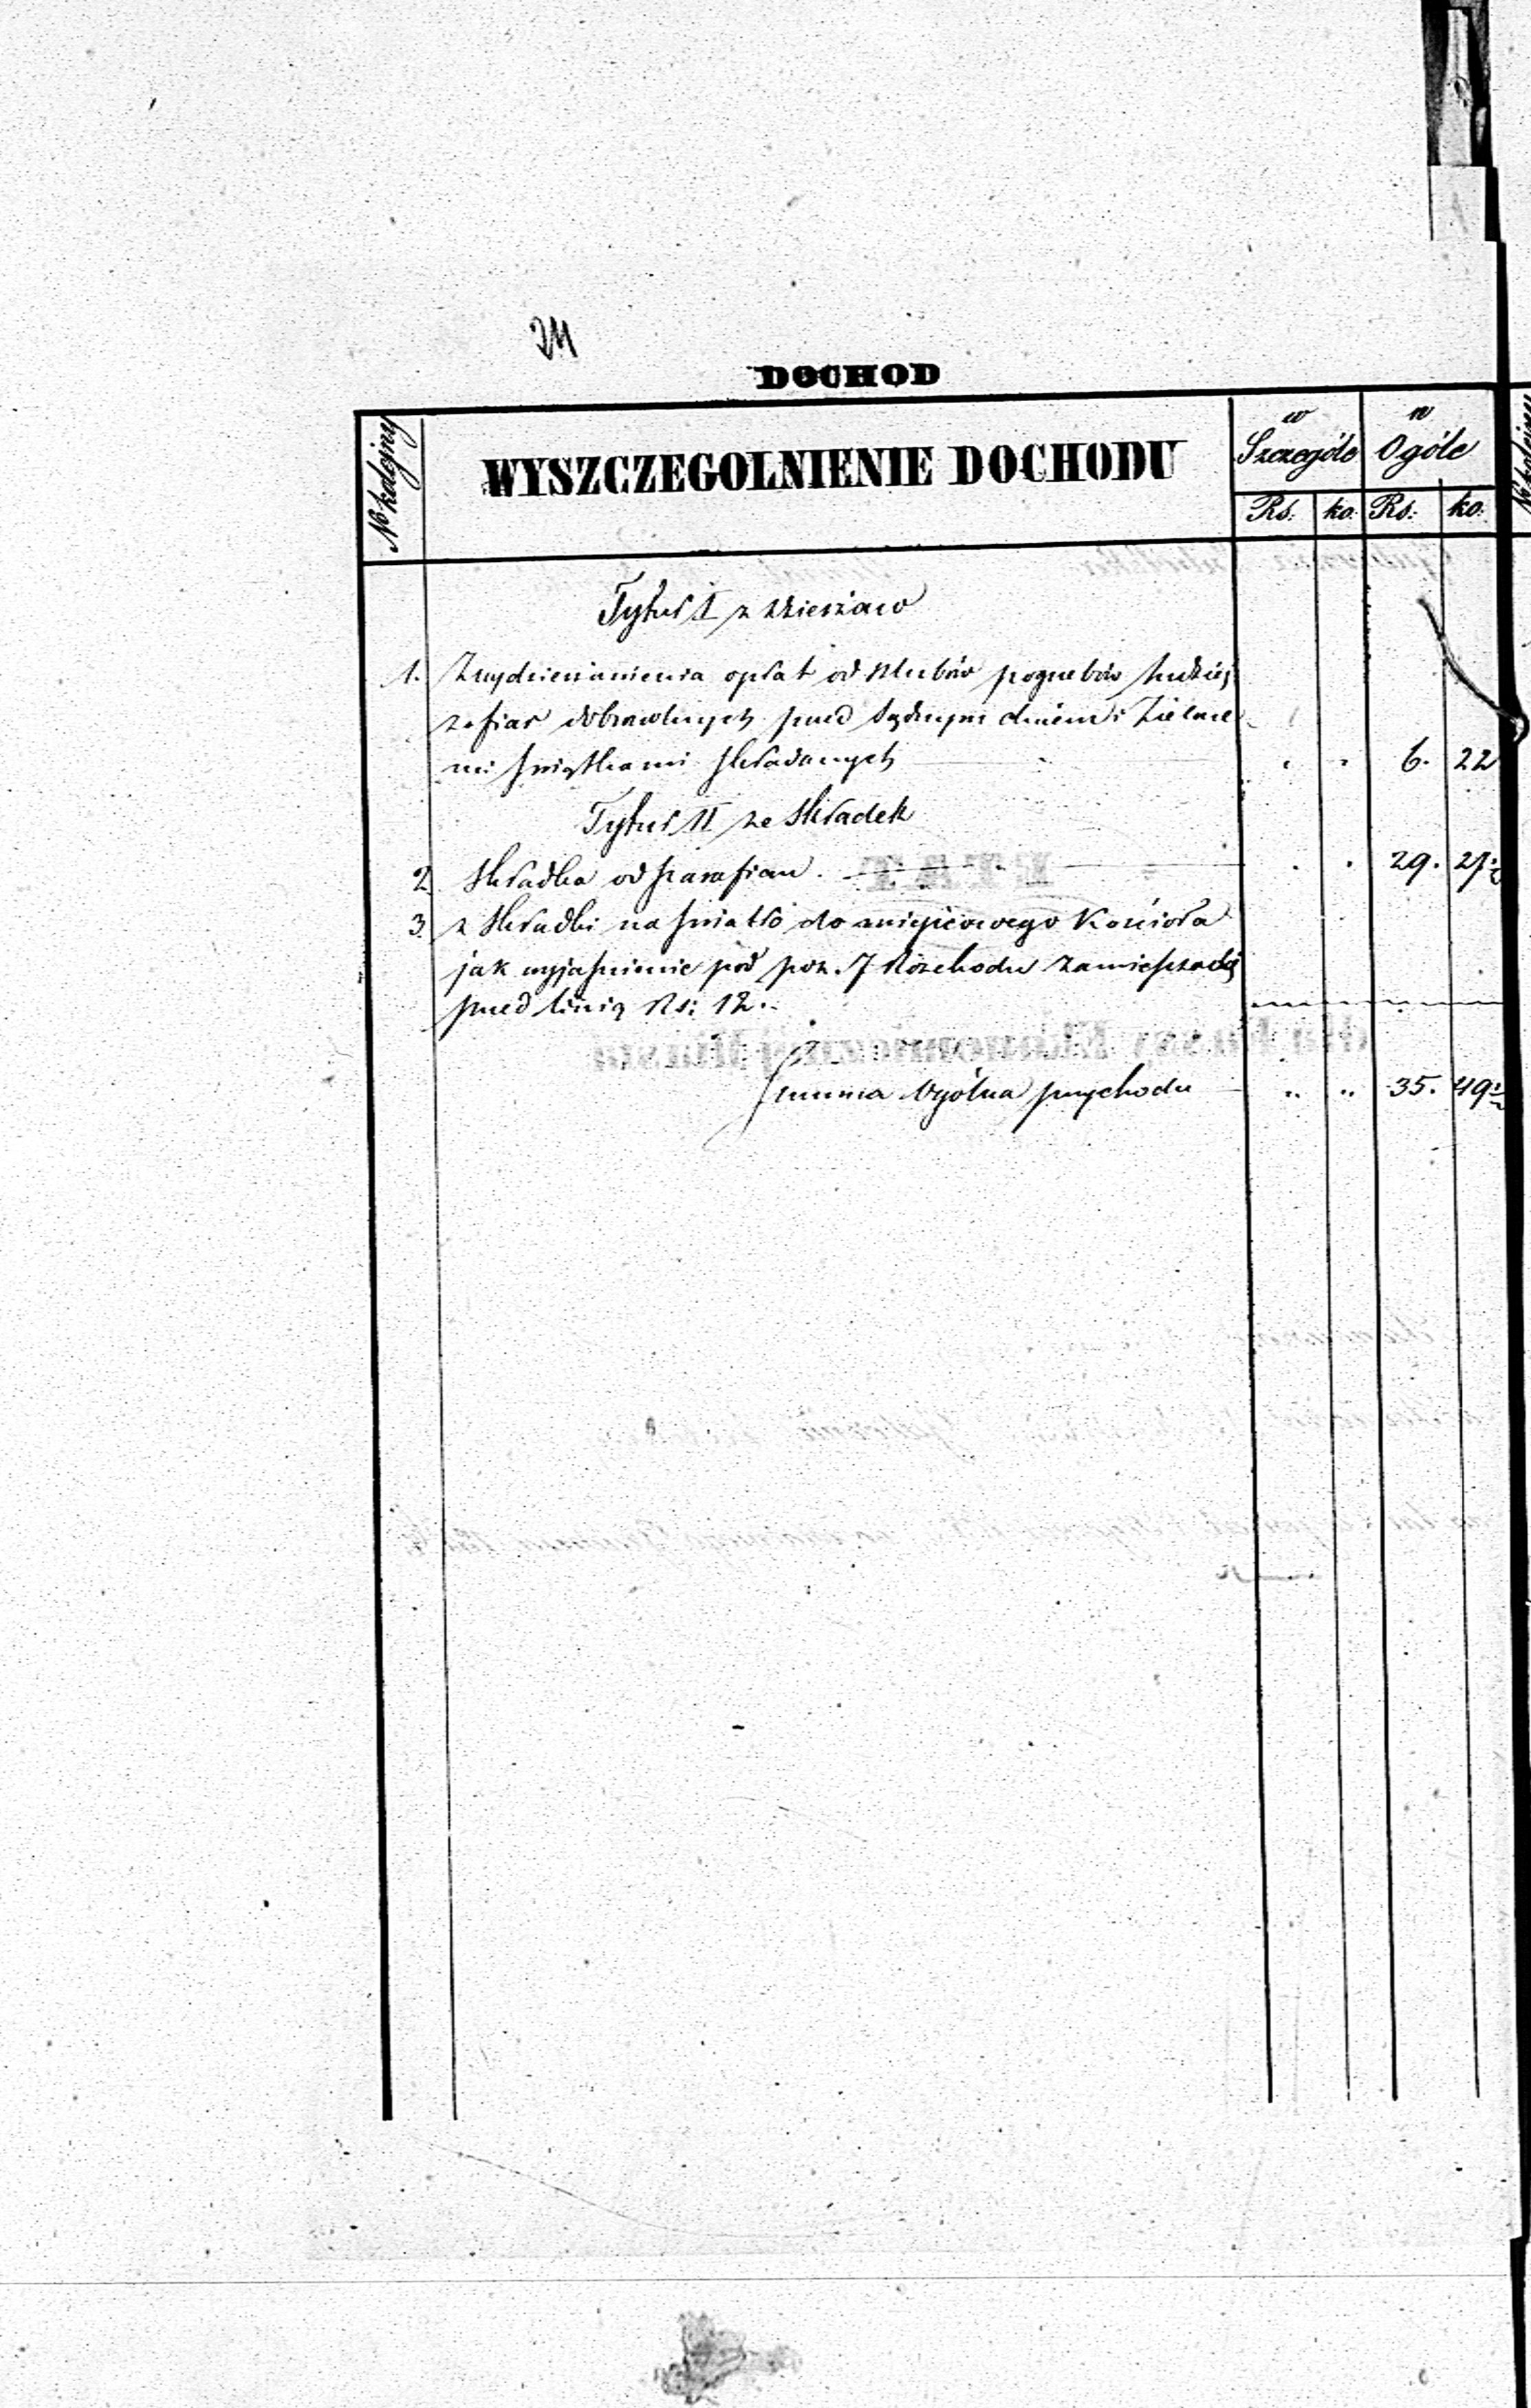 24
DOCHOD
№ kolejny
WYSZCZEGOLNIENIE DOCHODU
w Szczególe
w Ogóle
Rs: ko: Rs: ko:
Tytuł I z Dzierżaw
1. Z wydzierżawienia opłat od ślubów pogrzebów tudzież
z ofiar dobrowolnych przed Sądnym dniem i Zielone
mi Świątkami składanych 6. 22
Tytuł II ze Składek
2 Składka od parafian. 29. 27½
3. z Składki na światło do miejscowego Kościoła
jak wyjaśnienie pod poz. 7 Rozchodu zamieszcza się
przed linią Rs: 12.
Summa Ogólna przychodu " " 35. 49½